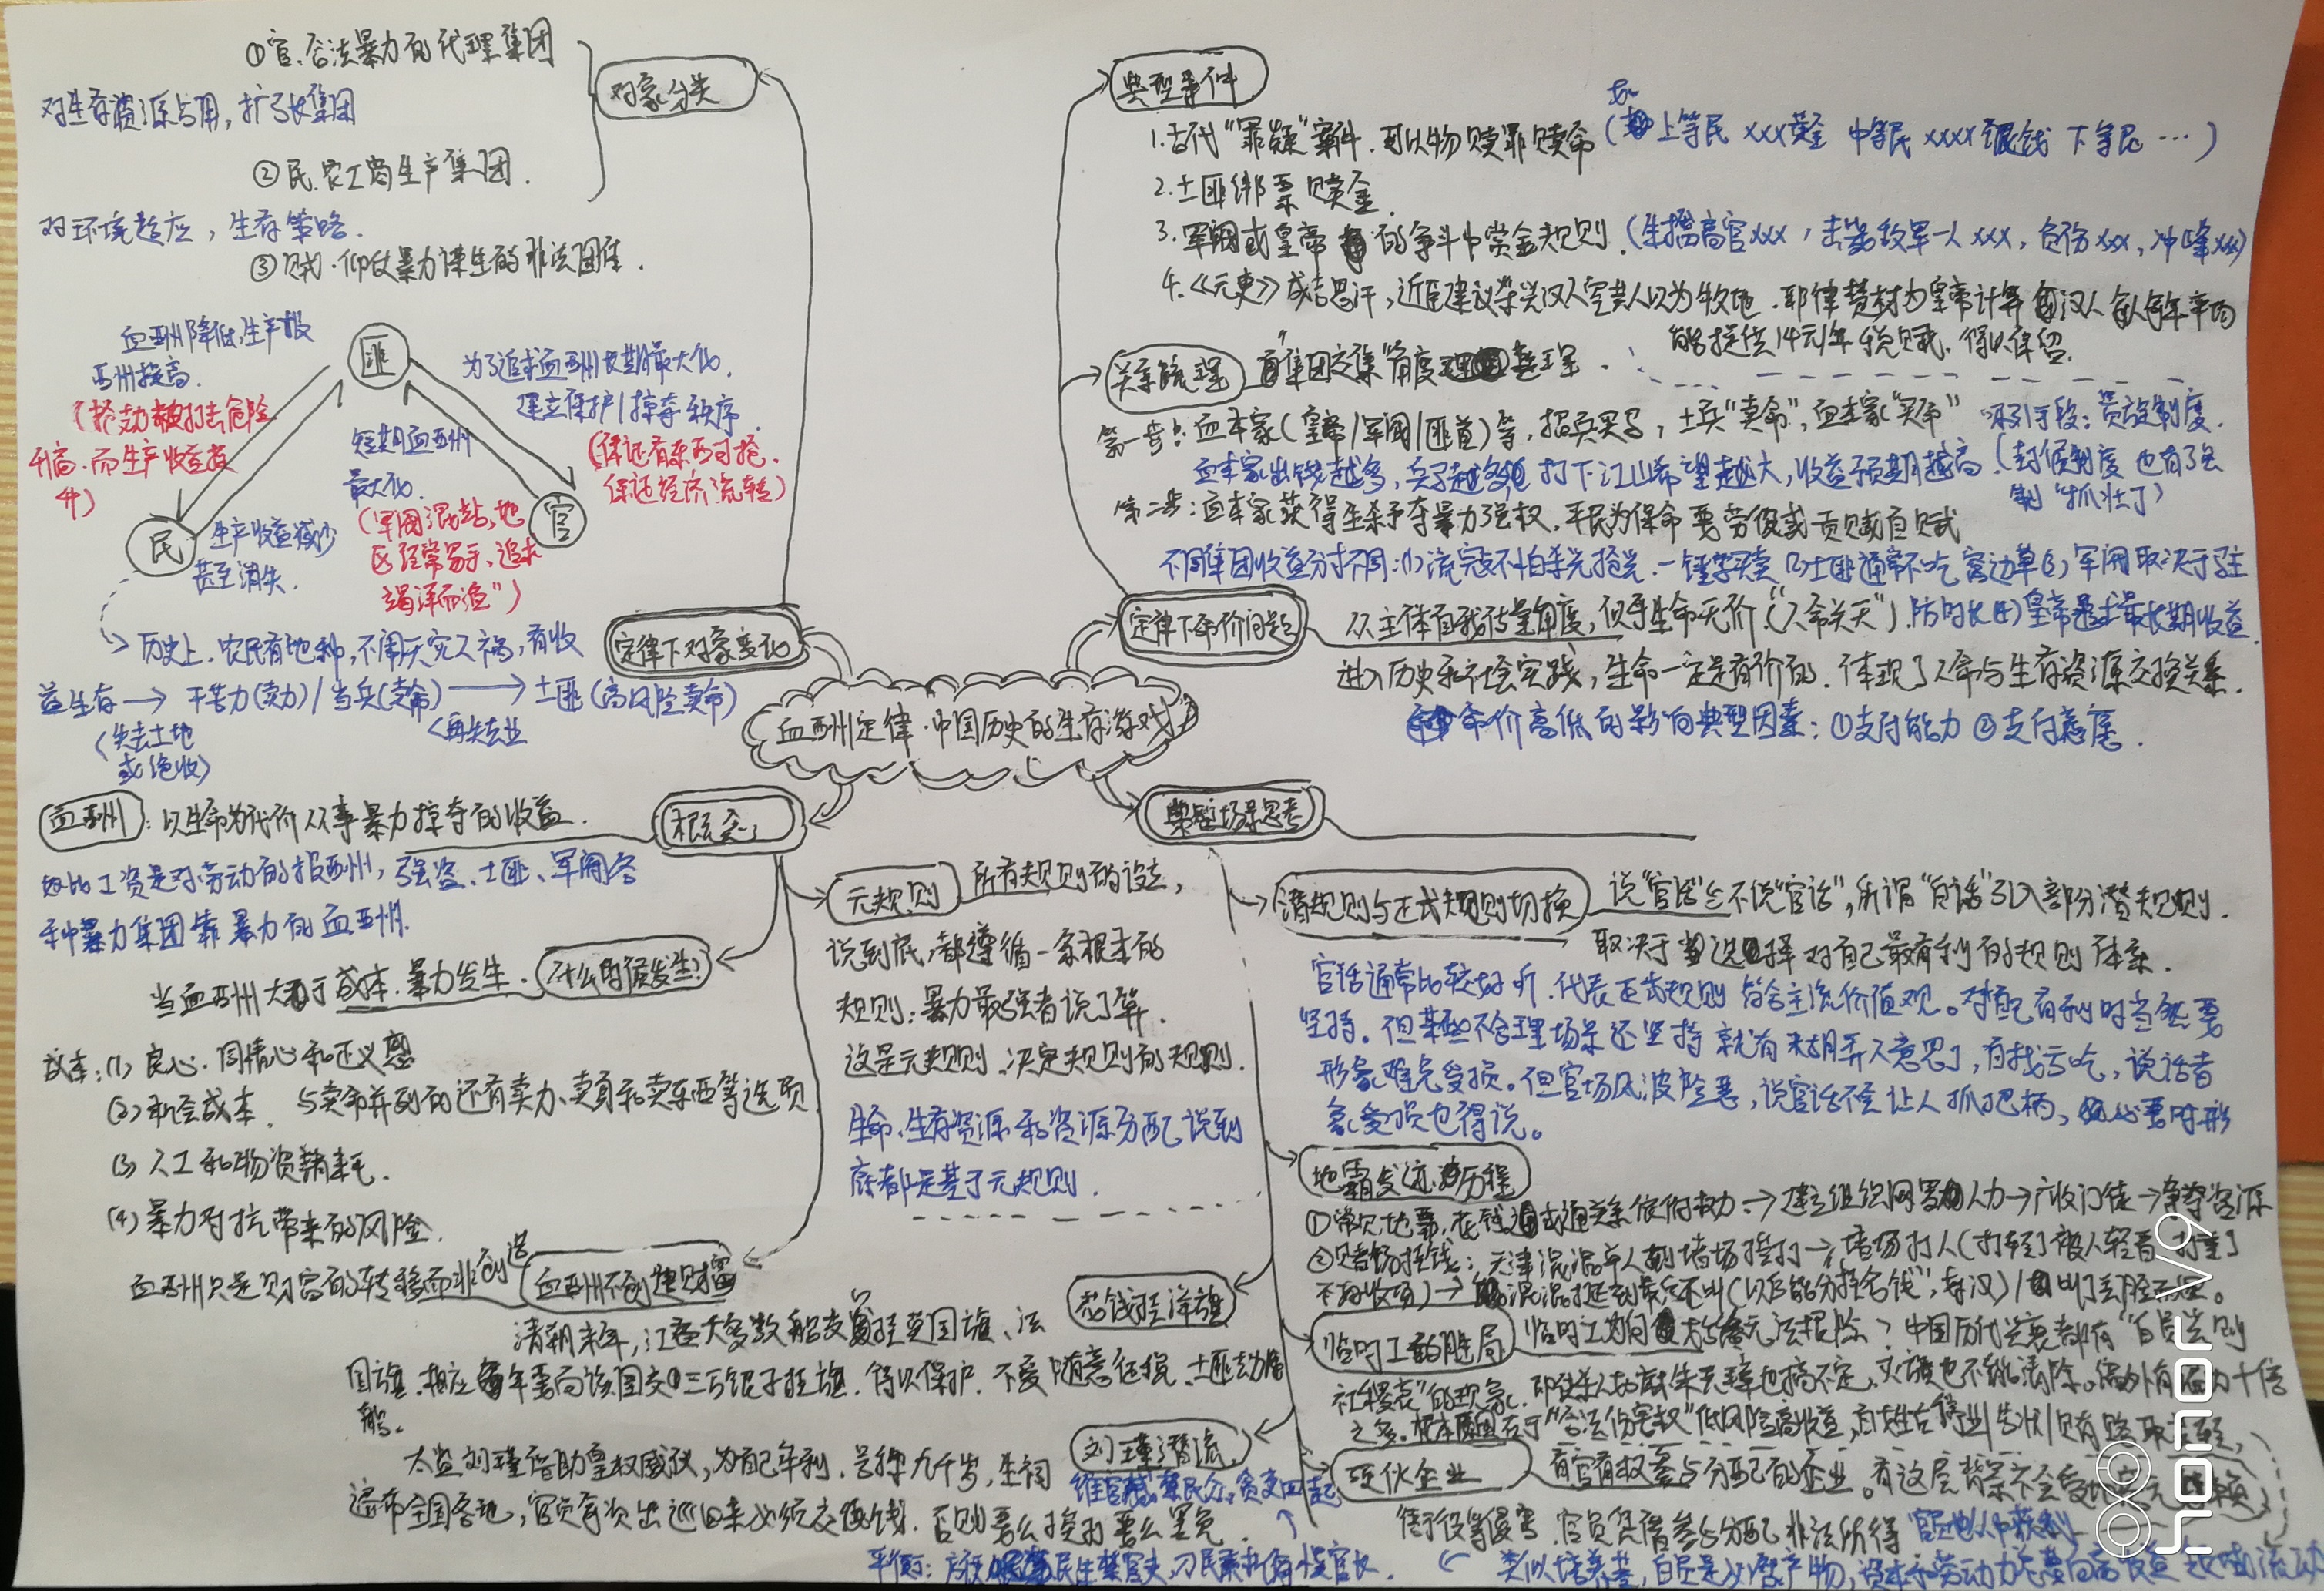 ①官.合法暴力的代理集团
对象分类
对生存资源占用，扩张集团
②民.农工商生产集团.
对环境适应，生存策略.
③贼.仰仗暴力谋生的非法团体.
匪
民
官
血酬降低,生产报
酬提高.
(抢劫被打击危险
升高.而生产收益提
升)
短期血酬
最大化.
(军阀混站,地
区经常易手、追求
"竭泽而渔")
生产收益减少
甚至消失.
为了追求血酬长期最大化.
建立保护/掠夺秩序.
(保证有东西可抢.
保证经济流转)
历史上.农民有地种,不闹天灾人祸,有收
益生存→干苦力(卖力)/当兵(卖命)→土匪(高风险卖命)
(失去土地
或绝收)
(再失业
定律下对象变化
血酬定律·中国历史的生存游戏
典型事件
1.古代"罪疑"案件.可以物赎罪赎命(如上等民xxx黄金 中等民xxxx银钱 下等民…)
2.土匪绑票赎金.
3.军阀或皇帝的争斗中赏金规则.(生擒高官xxx,击毙敌军一人xxx,负伤xxx,冲峰xx)
4.《元史》成吉思汗,近臣建议杀光汉人空其人以为牧地.耶律楚材为皇帝计算汉人每人每年平均
能提供14元/年税赋.得以保留.
关系梳理 "集团交集"角度整理.
第一步:血本家(皇帝/军阀/匪首)等,招兵买马,士兵"卖命",血本家"买命" 吸引手段:赏罚制度.
血本家出钱越多,兵子越多 打下江山希望越大,收益预期越高.(封侯制度 也有强
制"抓壮丁)
第二步:血本家获得生杀予夺暴力强权,平民为保命要劳役或贡赋自赋
不同集团收益分寸不同:(1)流寇不怕杀光抢光.一锤字买卖(2)土匪通常不吃窝边草(3)军阀取决于驻
防时长(4)皇帝追求最长期收益.
定律下命价问题
从主体自我估量角度,似乎生命无价("人命关天").
进入历史和社会实践,生命一定是有价的.体现了人命与生存资源交换关系.
命价高低的影响典型因素:①支付能力②支付意愿.
概念
血酬:以生命为代价从事暴力掠夺的收益.
好比工资是对劳动的报酬,强盗、土匪、军阀各
种暴力集团靠暴力的血酬.
什么时候发生?
当血酬大于成本.暴力发生.
成本:(1)良心.同情心和正义感
(2)机会成本. 与卖命并列的还有卖力、卖身和卖东西等选项
(3)人工和物资耗.
(4)暴力对抗带来的风险.
血酬不创造财富
血酬只是财富的转移而非创造
元规则
所有规则的设立,
说到底,都遵循一条根本的
规则:暴力最强者说了算.
这是元规则.决定规则的规则.
生命、生存资源和资源分配说到
底都是基于元规则.
典型场景思考
潜规则与正式规则切换
说"官话"与不说"官话",所谓"白话"引入部分潜规则.
取决于选择对自己最有利的规则体系.
官话通常比较好听.代表正式规则符合主流价值观。对自己有利时当然要
坚持。但某些不合理场景还坚持就有来胡弄人意思了,自找亏吃,说话者
形象难免受损。但官场风波险恶,说官话不会让人抓把柄,必要时形
象受损也得说。
地霸发迹历程
①常见地霸,花钱或通关系依附权力→建立组织网罗人力→广收门徒→争夺资源
②赌场挂钱:天津混混单人到堵场挨打→堵场打人(打轻了被人轻看 打重了
不好收场)→混混挺到最后不叫(以后能分"挂名钱",好汉)/叫了丢脸
花钱挂洋旗
清朝末年,江面大多数船支竟挂英国旗、法
国旗.相应每年要向该国交三万银子挂旗.得以保护.不受随意征税、土匪劫
船.
临时工的胜局
临时工为何无法根除?中国历代兴衰都有"白员
社"的现象.即使杀人如麻朱元璋也搞不定,灾旗也不能清除。编外有十倍
之多.根本原因在于"合法伤害权"低风险高收益,
刘瑾潜流
太监刘瑾借助皇权威仪,为自己牟利.号称九千岁,生祠
遍布全国各地,官员每次出巡回来必须交钱.否则要么挨打要么罢免.
灰伙企业
有官有权参与分配的企业。有这层背景不会受
官员凭借参与分配非法所得